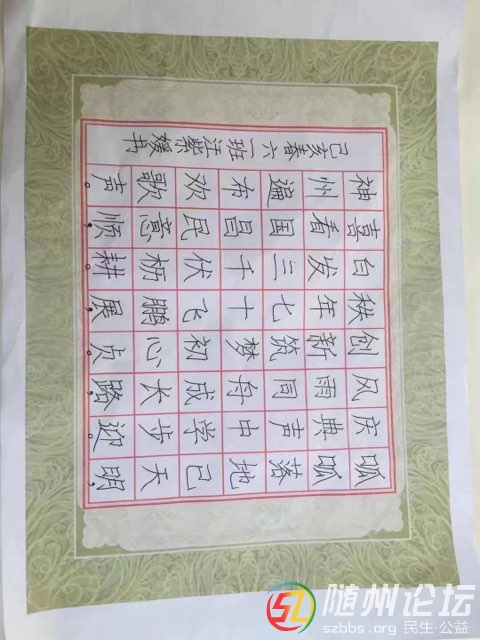 呱呱落地己天明，
庆典声中学步迎。
风雨同舟成长路，
创新筑梦初心贞。
秩年七十飞鹏展，
白发三千伏枥耕。
喜看国昌民意顺，
神州遍布欢歌声。
己亥春六一班江紫媛书
随州论坛
szbbs.org 民生·公益